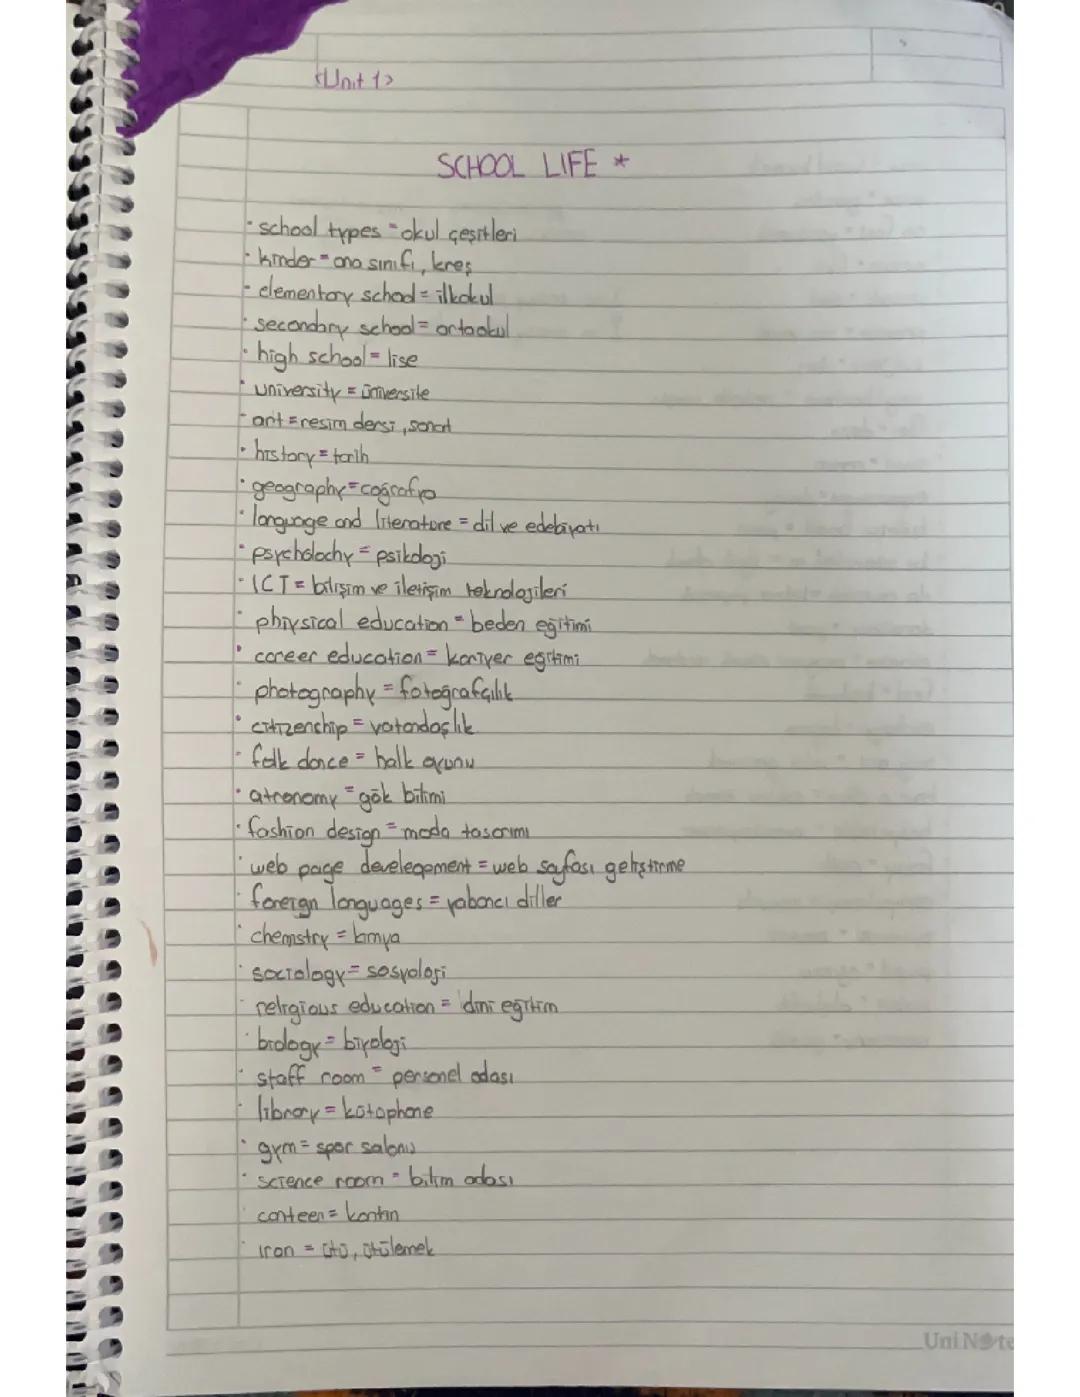 <Unit 1>
SCHOOL LIFE *
· school types = okul çeşitleri
· kinder = ana sınıfı, kreş
· elementary school = ilkokul
· secondary school = ortaokul
· high school = lise
· university = üniversite
· art = resim dersi, sanat
· history = tarih
· geography = coğrafya
· language and literature = dil ve edebiyatı
· psycholochy = psikoloji
· ICT = bilişim ve iletişim teknolojileri
· physical education = beden eğitimi
· career education = kariyer eğitimi
· photography = fotoğrafçılık
· citizenship = vatandaşlık
· folk dance = halk oyunu
· atronomy = gök bilimi
· fashion design = moda tasarımı
· web page develeopment = web sayfası geliştirme
· foreign languages = yabancı diller
· chemstry = kimya
· sociology = sosyoloji
· religious education = dini eğitim
· biology = biyoloji
· staff room = personel odası
· library = kütüphane
· gym = spor salonu
· science room = bilim odası
· canteen = kantin
· iron = ütü, ütülemek
UniNote